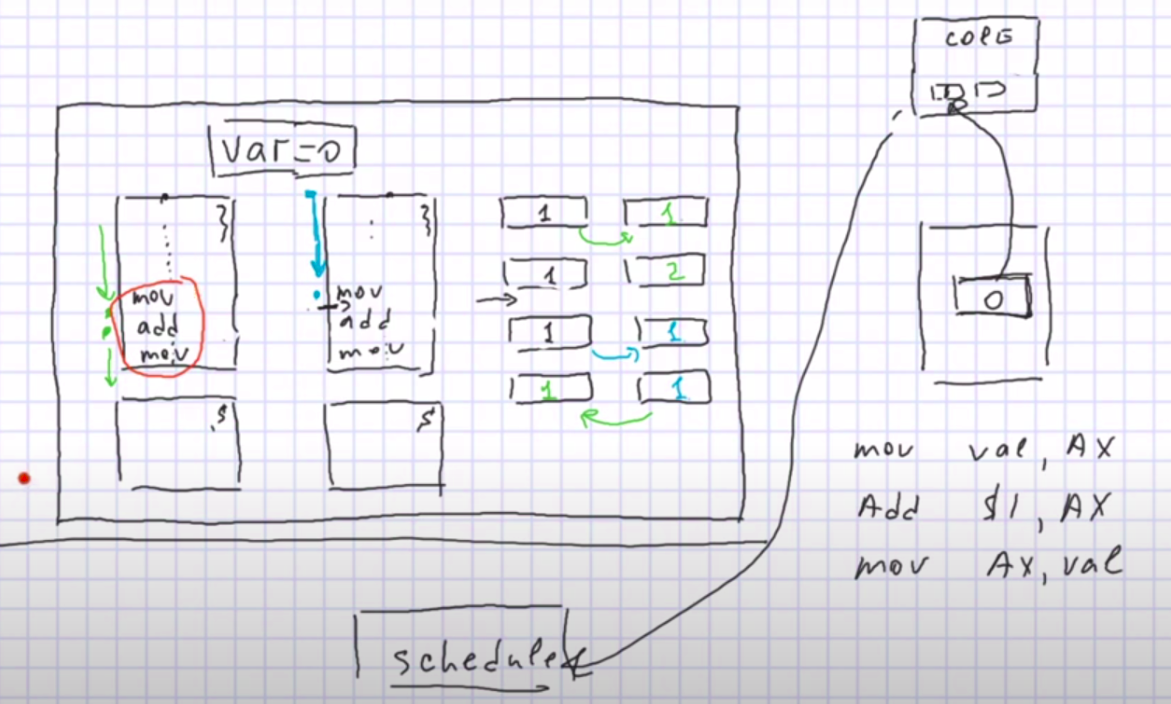 CORE
var=0
mov
add
mov
mov
add
mov
s
s
1 1
1 2
1 1
1 1
0
mov val, AX
Add $1, AX
mov AX, val
scheduler